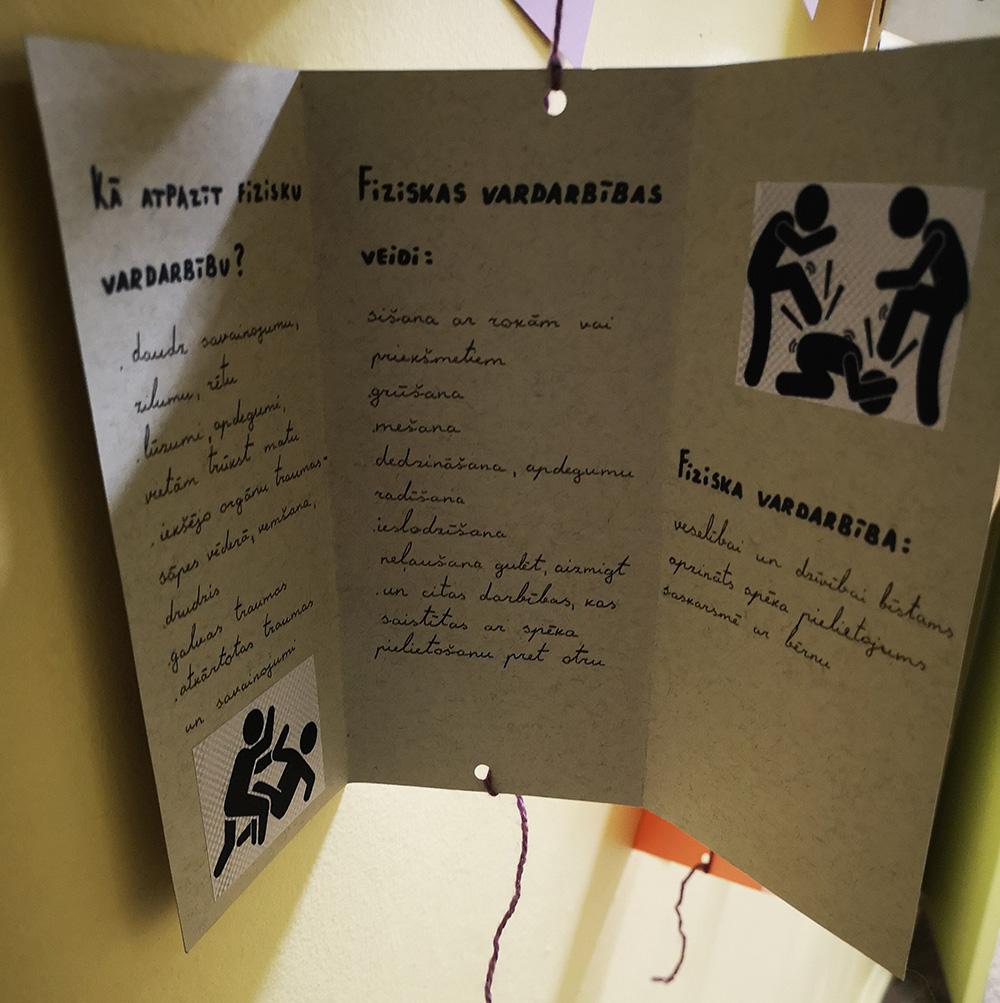 KĀ ATPAZĪT FIZISKU
VARDARBĪBU?
. daudz savainojumu,
zilumu, rētu
. lūzumi, apdegumi,
vietām trūkst matu
. iekšējo orgānu traumas-
sāpes vēderā, vemšana,
drudzis
. galvas traumas
. atkārtotas traumas
un savainojumi
FIZISKAS VARDARBĪBAS
VEIDI:
sišana ar rokām vai
priekšmetiem
.grūšana
.mešana
dedzināšana, apdegumu
radīšana
.ieslodzīšana
neļaušana gulēt, aizmigt
.un citas darbības, kas
saistītas ar spēka
pielietošanu pret otru
FIZISKA VARDARBĪBA:
veselībai un dzīvībai bīstams
apzināts spēka pielietojums
saskarsmē ar bērnu